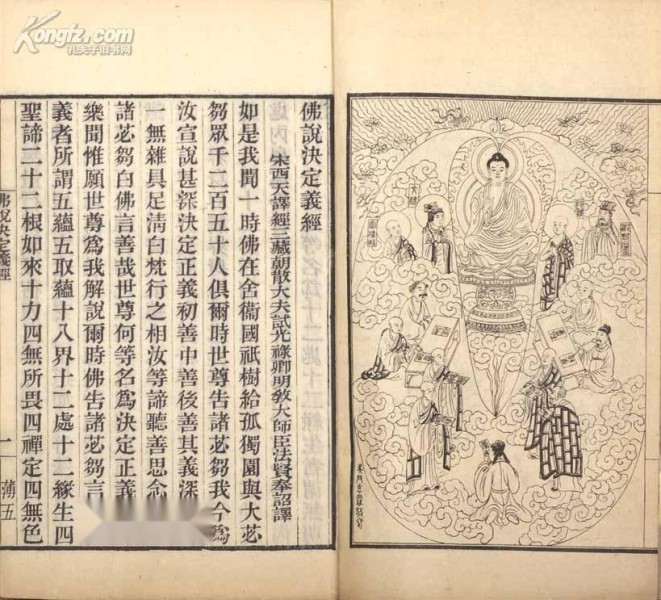 Kongfz.com
孔夫子旧书网
佛說決定義經
宋西天譯經三藏朝散大夫試光祿卿明教大師臣法賢奉詔譯
如是我聞一時佛在舍衞國祇樹給孤獨園與大苾
芻眾千二百五十人俱爾時世尊告諸苾芻我今爲
汝宣說甚深決定正義初善中善後善其義深
一無雜具足清白梵行之相汝等諦聽善思念
諸苾芻白佛言善哉世尊何等名爲決定正義
樂聞惟願世尊爲我解說爾時佛告諸苾芻言
義者所謂五蘊五取蘊十八界十二處十二緣生四
聖諦二十二根如來十力四無所畏四禪定四無色
佛說決定義經
一
薄五